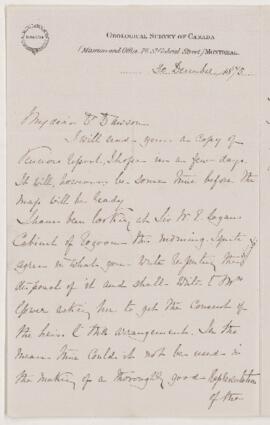 GEOLOGICAL SURVEY OF CANADA
(Museum and Office, 76 St. Gabriel Street) MONTREAL.
20 December 1875.
My dear Dr Dawson
I will send you a copy of
Report, I hope in a few days.
It will, however, be some time before the
map will be ready
I have been looking at Sir W. E. Logans
Cabinet of Eozoon this morning. I quite
agree in what you write respecting the
disposal of it and shall write to Mr
Gower asking him to get the consent of
the heirs to this arrangement. In the
mean time could it not be used in
the making of a thoroughly good representation
of the